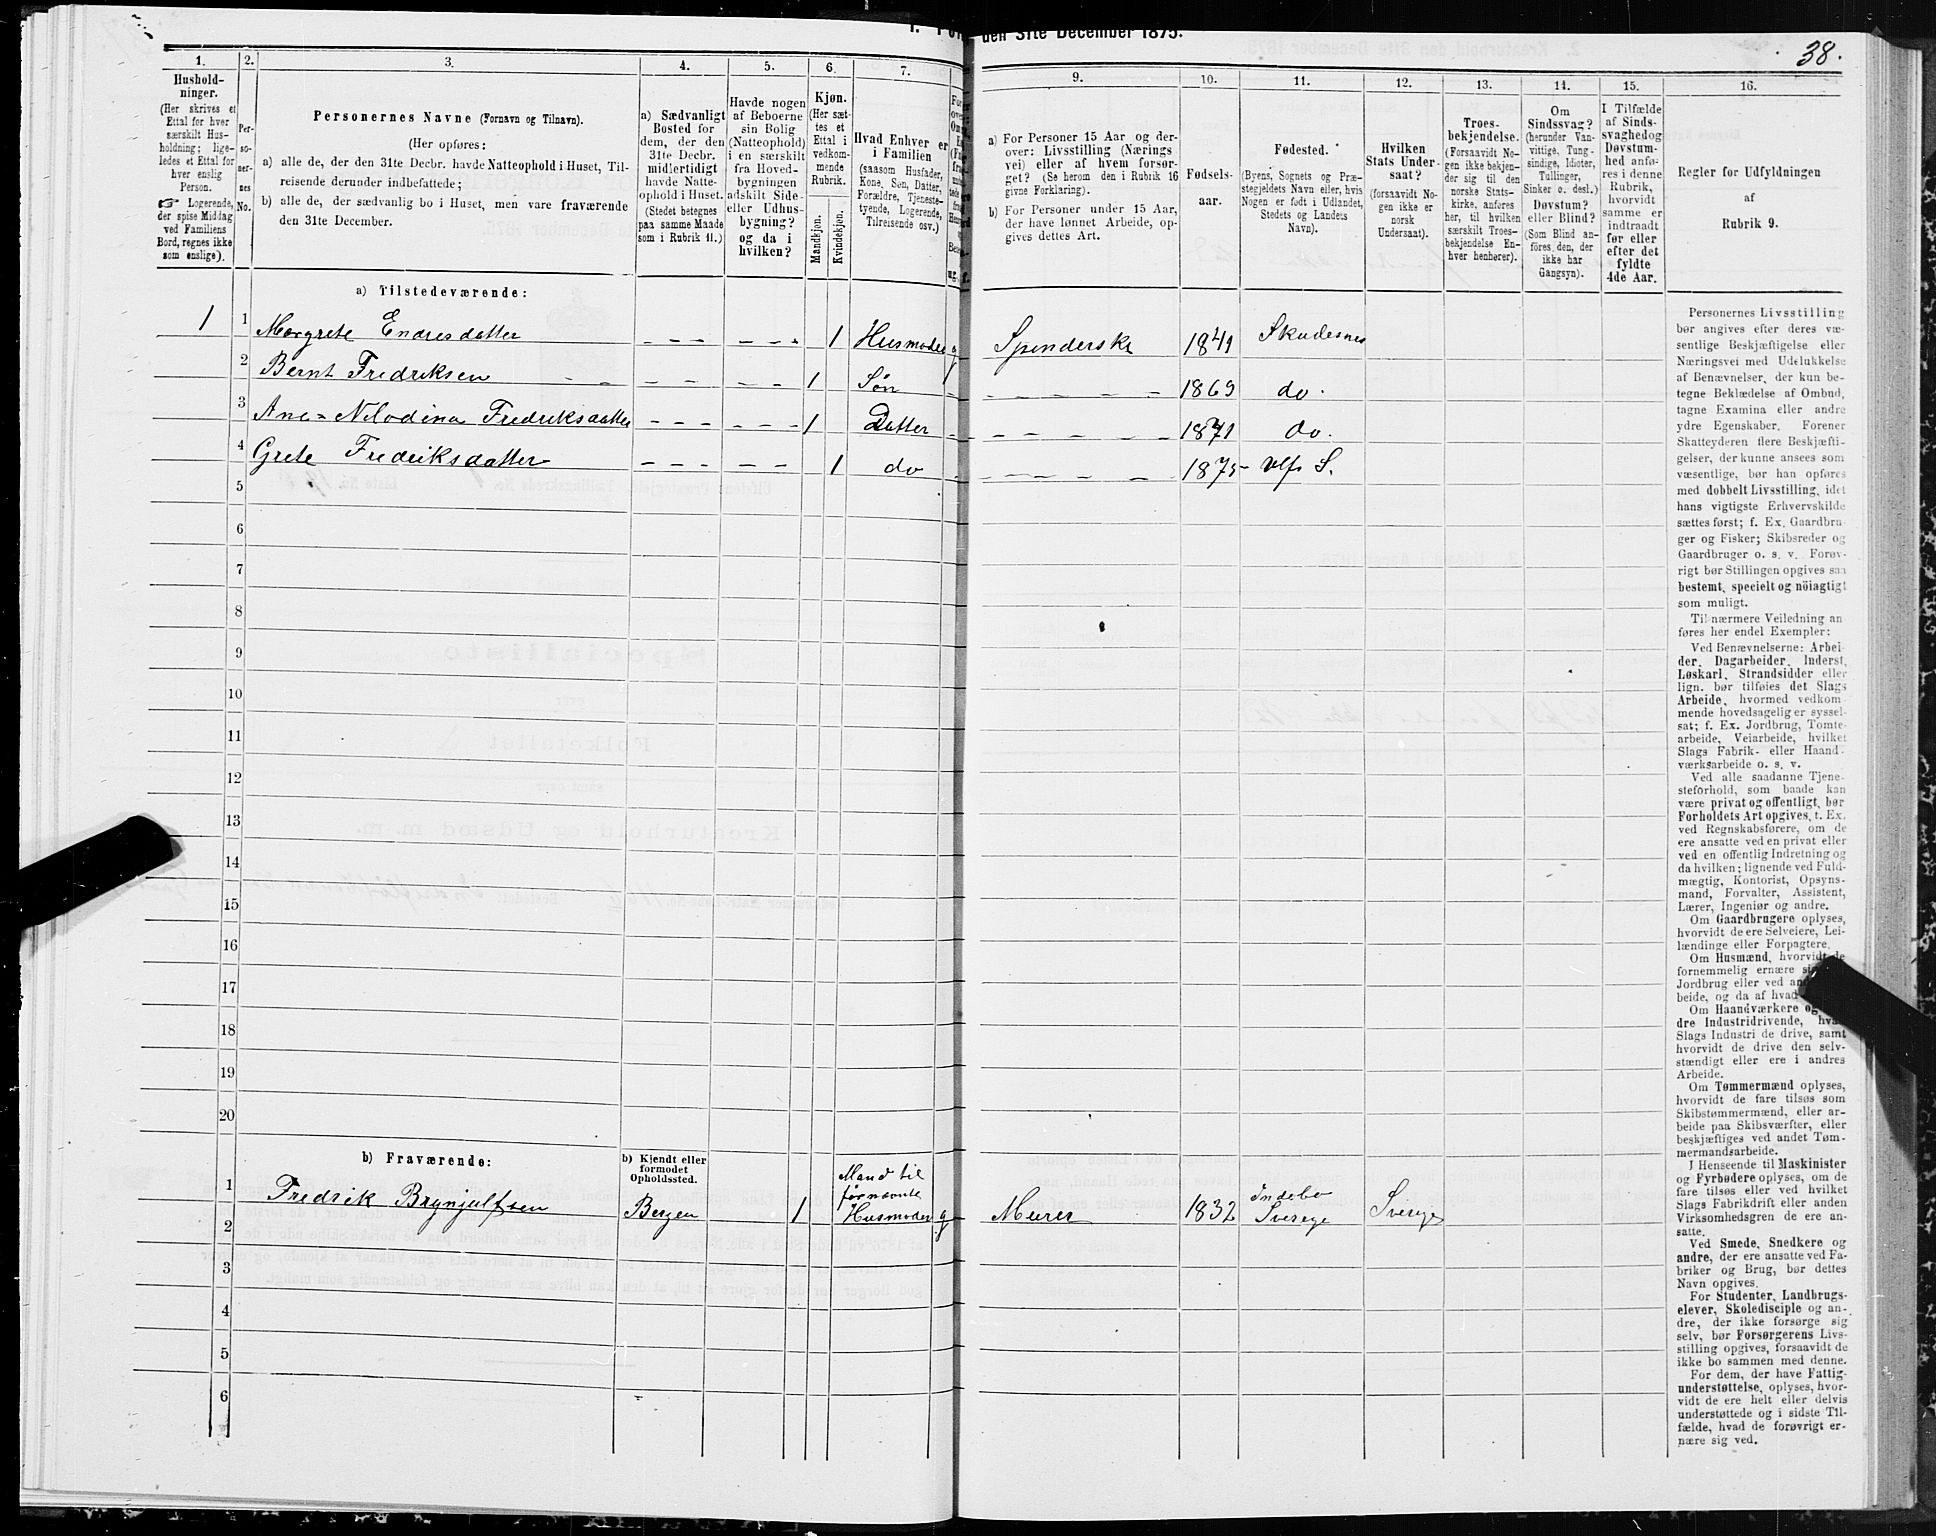 1. Fol den 31te December 1875.
38.
1.
Hushold-
ninger.
(Her skrives et
Ettal for hver
særskilt Hus-
holdning; lige-
ledes et Ettal for
hver enslig
Person.
☞ Logerende,
der spise Middag
ved Familiens
Bord, regnes ikke
som enslige).
2.
Per-
so-
ner-
nes
No.
3.
Personernes Navne (Fornavn og Tilnavn).
(Her opføres:
a) alle de, der den 31te Decbr. havde Natteophold i Huset, Til-
reisende derunder indbefattede;
b) alle de, der sædvanlig bo i Huset, men vare fraværende
den 31te December.
4.
a) Sædvanligt
Bosted for
dem, der den
31te Decbr.
midlertidigt
havde Natte-
ophold i Huset.
(Stedet betegnes
paa samme Maade
som i Rubrik 11.)
5.
Havde nogen
af Beboerne
sin Bolig
(Natteophold)
i en særskilt
fra Hoved-
bygningen
adskilt Side-
eller Udhus-
bygning?
og da i
hvilken?
6.
Kjøn.
(Her sæt-
tes et
Ettal i
vedkom-
mende
Rubrik.
Mandkjøn.
Kvindekjøn.
7.
Hvad Enhver er
i Familien
(saasom Husfader,
Kone, Søn, Datter,
Forældre, Tjeneste-
tyende, Logerende,
Tilreisende osv.)
9.
a) For Personer 15 Aar og der-
over: Livsstilling (Nærings
vei) eller af hvem forsør-
get? (Se herom den i Rubrik 16
givne Forklaring).
b) For Personer under 15 Aar,
der have lønnet Arbeide, op-
gives dettes Art.
10.
Fødsels-
aar.
11.
Fødested.
(Byens, Sognets og Præ-
stegjeldets Navn eller, hvis
Nogen er født i Udlandet,
Stedets og Landets
Navn).
12.
Hvilken
Stats Under-
saat?
(forsaavidt No-
gen ikke er
norsk
Undersaat).
13.
Troes-
bekjendelse.
(Forsaavidt No-
gen ikke bekjen-
der sig til den
norske Stats-
kirke, anføres
her, til hvilken
særskilt Troes-
bekjendelse En-
hver henhører).
14.
Om
Sindssvag?
(herunder Van-
vittige, Tung-
sindige, Idioter,
Tullinger,
Sinker o. desl.)
Døvstum?
eller Blind?
(Som Blind an-
føres den, der
ikke har
Gangsyn).
15.
I Tilfælde
af Sinds-
svaghedog
Døvstum-
hed anfø-
res i denne
Rubrik,
hvorvidt
samme er
indtraadt
før eller
efter det
fyldte
4de Aar.
16.
Regler for Udfyldningen
af
Rubrik 9.
a) Tilstedeværende:
1 1 Margrete Endresdatter 1 Husmoder g Spinderske 1841 Skudesnes
2 Bernt Fredriksen 1 Søn 1869 do.
3 Ane-Nilodina Fredriksdatter 1 Datter 1871 do.
4 Grete Fredriksdatter 1 do 1875 Ulfs S.
5
6
7
8
9
10
11
12
13
14
15
16
17
18
19
20
b) Fraværende:
b) Kjendt eller
formodet
Opholdssted.
Mand til
førnævnte
1 Fredrik Brynjulfsen Bergen 1 Husmoder g Murer 1832 Indebo Sverige Sverige
2
3
4
5
6
Personernes Livsstilling
bør angives efter deres væ-
sentlige Beskjæftigelse eller
Næringsvei med Udelukkelse
af Benævnelser, der kun be-
tegne Beklædelse af Ombud,
tagne Examina eller andre
ydre Egenskaber. Forener
Skatteyderen flere Beskjæfti-
gelser, der kunne ansees som
væsentlige, bør han opføres
med dobbelt Livsstilling, idet
hans vigtigste Erhvervskilde
sættes først; f. Ex. Gaardbru-
ger og Fisker; Skibsreder og
Gaardbruger o. s. v. Forøv-
rigt bør Stillingen opgives saa
bestemt, specielt og nöiagtigt
som muligt.
Til nærmere Veiledning an
føres her endel Exempler:
Ved Benævnelserne: Arbei-
der, Dagarbeider, Inderst,
Løskarl, Strandsidder eller
lign. bør tilføies det Slags
Arbeide, hvormed vedkom-
mende hovedsagelig er syssel-
sat; f. Ex. Jordbrug, Tomte-
arbeide, Veiarbeide, hvilket
Slags Fabrik- eller Haand-
værksarbeide o. s. v.
Ved alle saadanne Tjene-
steforhold, som baade kan
være privat og offentligt, bør
Forholdets Art opgives, f. Ex.
ved Regnskabsførere, om de
ere ansatte ved en privat eller
ved en offentlig Indretning og
da hvilken; lignende ved Fuld-
mægtig, Kontorist, Opsyns-
mand, Forvalter, Assistent,
Lærer, Ingeniør og andre.
Om Gaardbrugere oplyses,
hvorvidt de ere Selveiere, Lei-
lændinge eller Forpagtere.
Om Husmænd, hvorvidt de
fornemmelig ernære si
Jordbrug eller ved an
beide, og da af hvad
Om Haandværkere og
dre Industridrivende, hva
Slags Industri de drive, samt
hvorvidt de drive den selv-
stændigt eller ere i andres
Arbeide.
Om Tømmermænd oplyses,
hvorvidt de fare tilsøs som
Skibstømmermænd, eller ar-
beide paa Skibsværfter, eller
beskjæftiges ved andet Tøm-
mermandsarbeide.
I Henseende til Maskinister
og Fyrbødere oplyses, om de
fare tilsøs eller ved hvilket
Slags Fabrikdrift eller anden
Virksomhedsgren de ere an-
satte.
Ved Smede, Snedkere og
andre, der ere ansatte ved Fa-
briker og Brug, bør dettes
Navn opgives.
For Studenter, Landbrugs-
elever, Skoledisciple og an-
dre, der ikke forsørge sig
selv, bør Forsørgerens Livs-
stilling opgives, forsaavidt de
ikke bo sammen med denne.
For dem, der have Fattig-
understøttelse, oplyses, hvor-
vidt de ere helt eller delvis
understøttede og i sidste Til-
fælde, hvad de forøvrigt er-
nære sig ved.